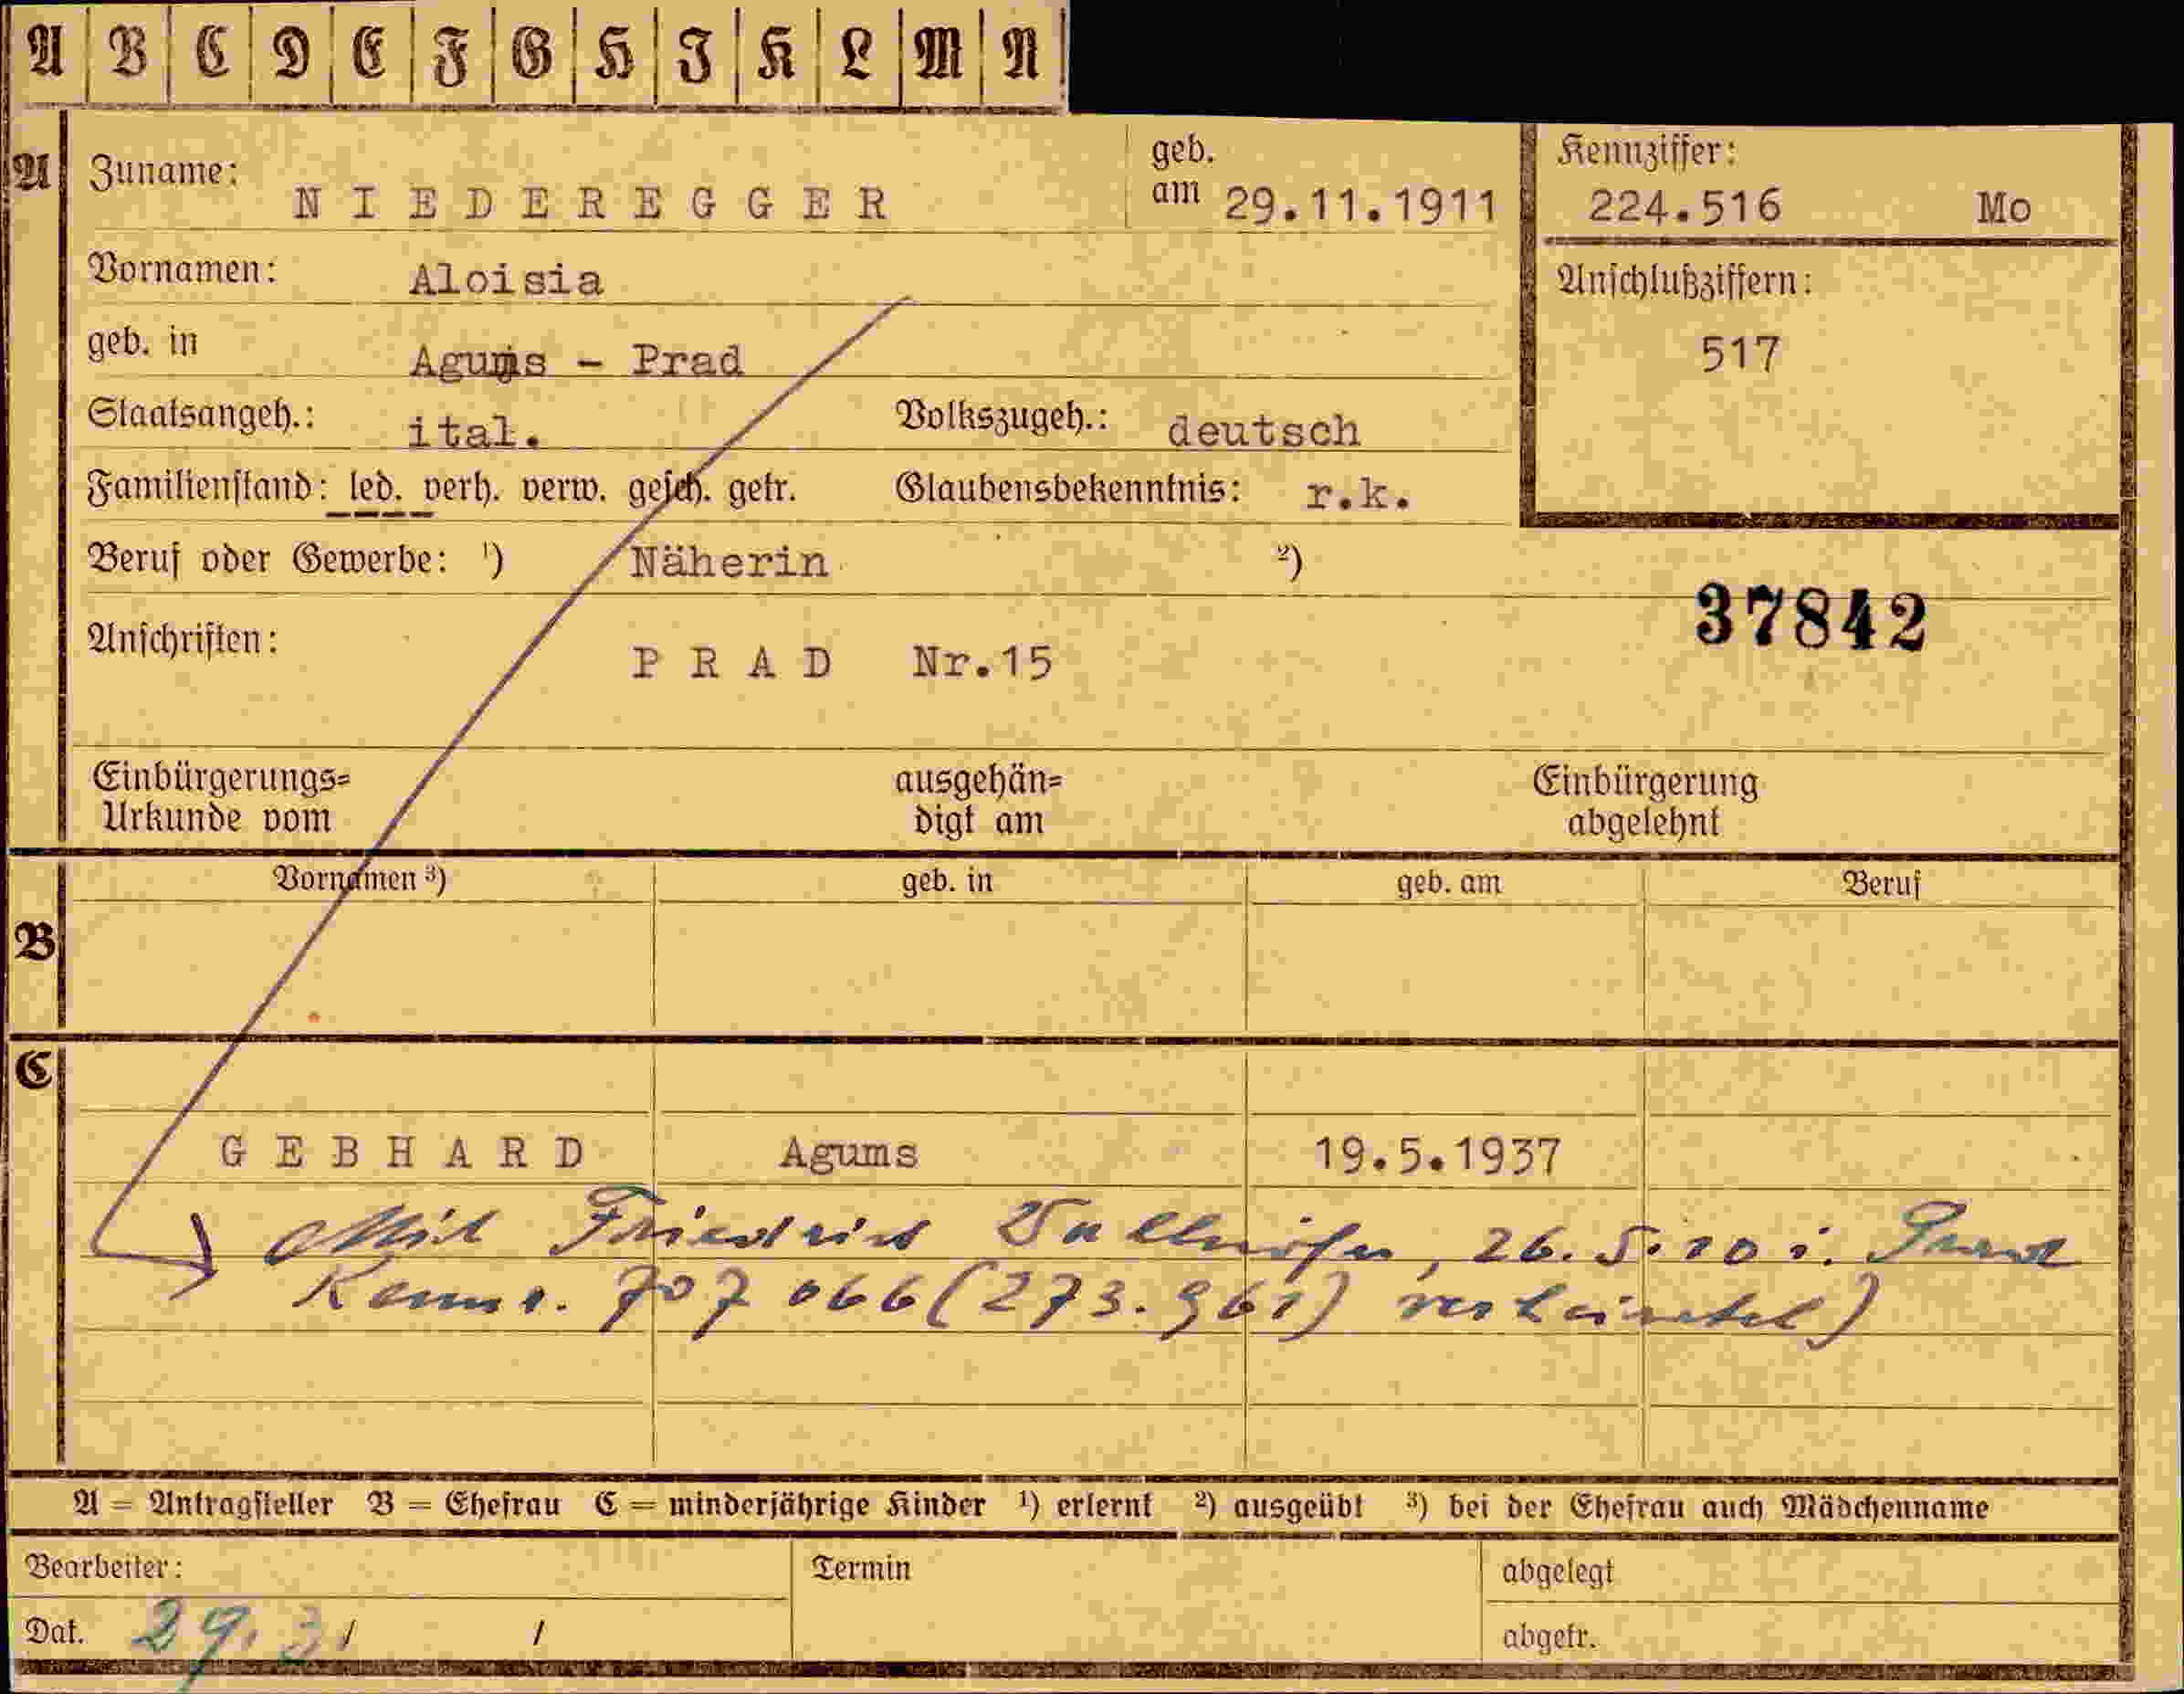 A B C D E F G H I K L M N
A Zuname: NIEDEREGGER geb. am 29.11.1911
Kennziffer: 224.516 Mo
Vornamen: Aloisia
Anschlußziffern:
517
geb. in Agums - Prad
Staatsangeh.: ital. Volkszugeh.: deutsch
Familienstand: led. verh. verw. gesch. getr. Glaubensbekenntnis: r.k.
Beruf oder Gewerbe: ¹) Näherin ²)
37842
Anschriften: PRAD Nr.15
Einbürgerungs=
Urkunde vom
ausgehän=
digt am
Einbürgerung
abgelehnt
Vornamen ³) geb. in geb. am Beruf
B
C
GEBHARD Agums 19.5.1937
Mit Friedrich , 26.5.10 i. Prad
Kennr. 707 066 (273.961) verheiratet)
A = Antragsteller B = Ehefrau C = minderjährige Kinder ¹) erlernt ²) ausgeübt ³) bei der Ehefrau auch Mädchenname
Bearbeiter: Termin abgelegt
Dat. 29. 3. / / abgetr.